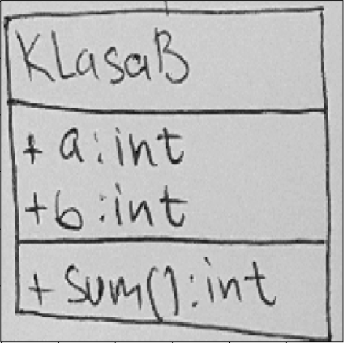 KLasaB
+ a:int
+b:int
+ sum():int